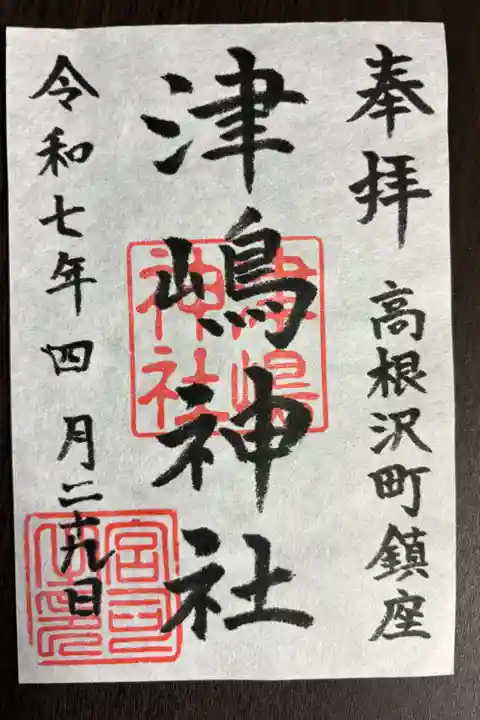 奉拝
高根沢町鎮座
津嶋神社
津嶋神社
令和七年四月二十九日
宮司